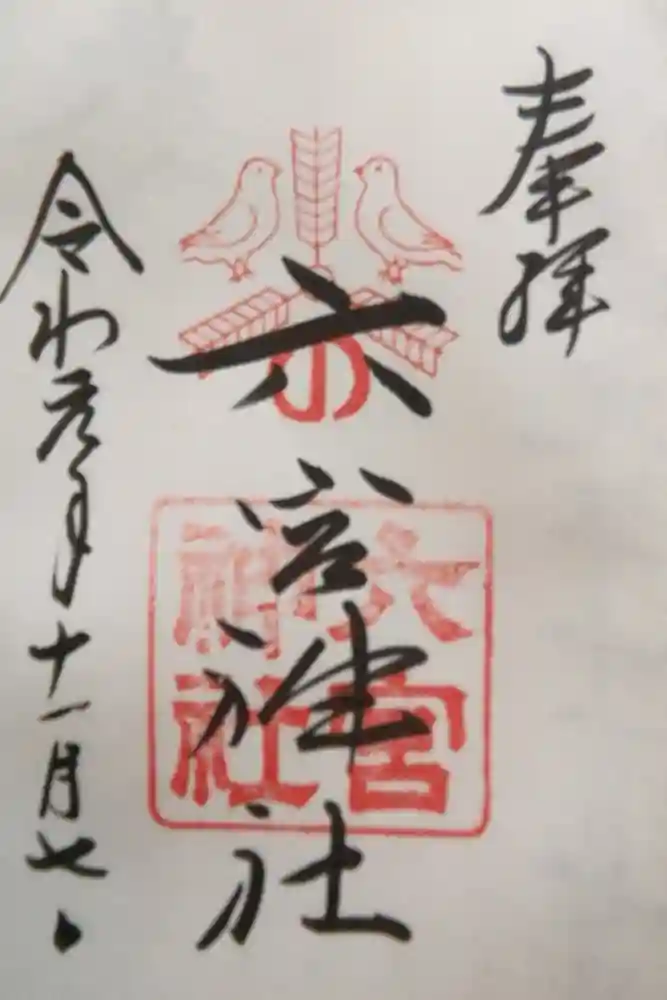 奉拝
六宮神社
六宮
神社
令和元年十一月七日